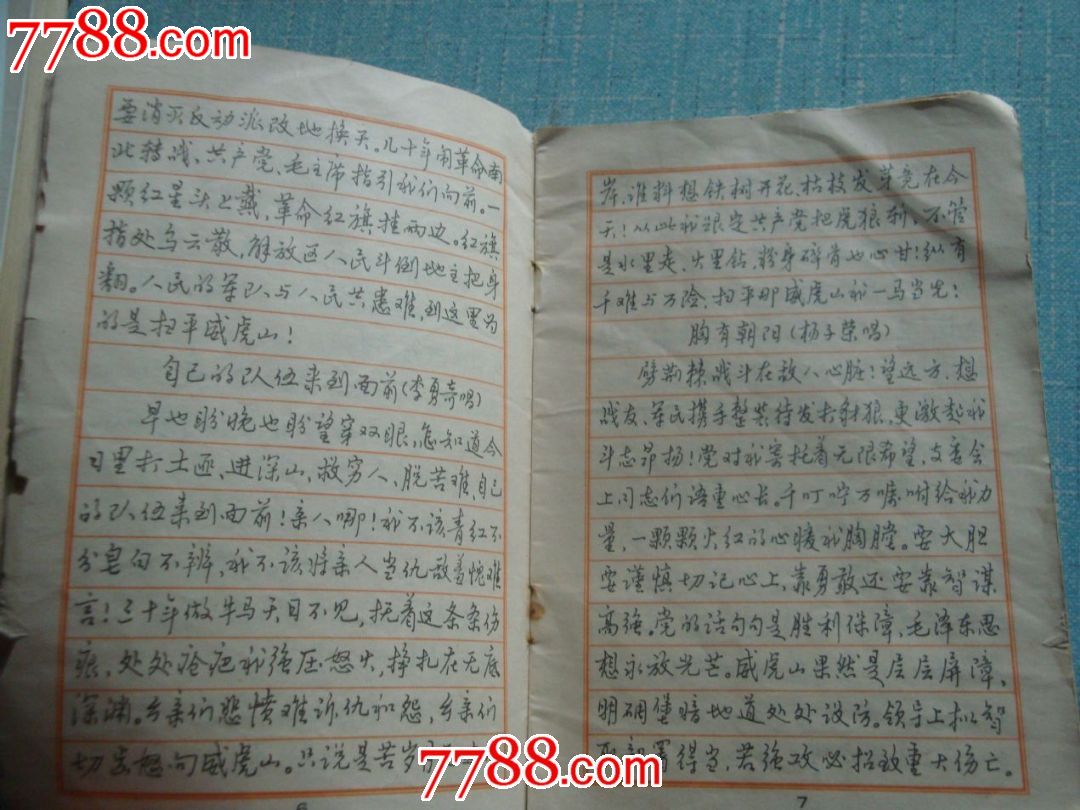 7788.com
要消灭反动派改地换天。几十年闹革命南
北转战、共产党、毛主席指引我们向前。一
颗红星头上戴,革命红旗挂两边。红旗
指处乌云散,解放区人民斗倒地主把身
翻。人民的军队与人民共患难,到这里为
的是扫平威虎山!
自己的队伍来到面前(李勇奇唱)
早也盼晚也盼望穿双眼,怎知道今
日里打土匪、进深山、救穷人、脱苦难、自己
的队伍来到面前!亲人哪!我不该青红不
分皂白不辨,我不该将亲人当仇敌羞愧难
言!三十年做牛马天日不见,抚着这条条伤
痕、处处疮疤我强压怒火,挣扎在无底
深渊。乡亲们悲愤难诉仇和怨,乡亲们
切齿怒向威虎山。只说是苦岁
6
岸,谁料想铁树开花、枯枝发芽竟在今
天!从此我跟定共产党把虎狼斩,不管
是水里走、火里钻,粉身碎骨也心甘!纵有
千难与万险,扫平那威虎山我一马当先!
胸有朝阳(杨子荣唱)
劈荆棘战斗在敌人心脏!望远方、想
战友、军民携手整装待发打豺狼,更激起我
斗志昂扬!党对我寄托着无限希望,支委会
上同志们语重心长。千叮咛万嘱咐给我力
量,一颗颗火红的心暖我胸膛。要大胆
要谨慎切记心上,靠勇敢还要靠智谋
高强。党的话句句是胜利保障,毛泽东思
想永放光芒。威虎山果然是层层屏障,
明碉堡暗地道处处设防。领导上拟智
取部署得当,若强攻必招致重大伤亡。
7
7788.com